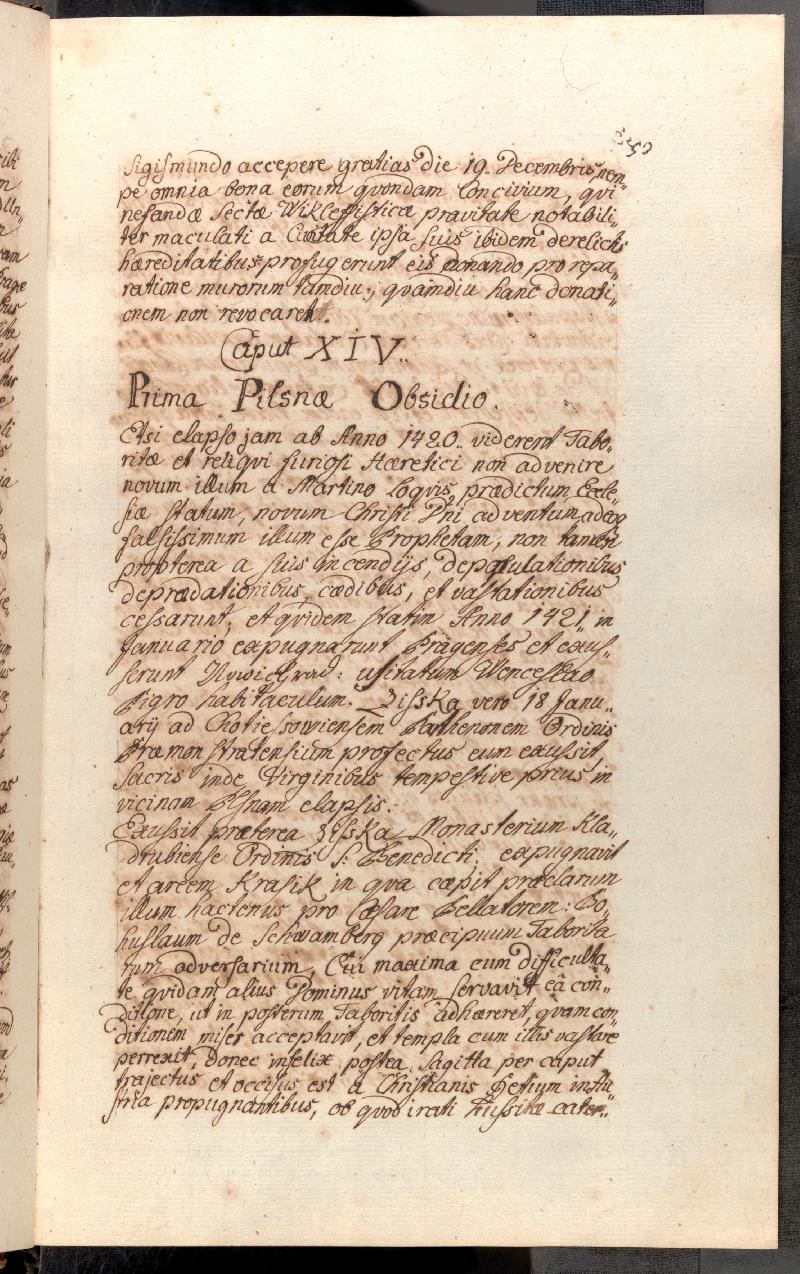 Sigismundo accepere gratias die 19. Decembris nem„
pe omnia bona eorum quondam Concivium, qvi
nefandæ Sectæ Wikleffisticæ pravitate notabili„
ter maculati a Civitate ipsa suis ibidem derelictis
hæreditatibus profugerunt eis donando pro repa„
ratione murorum tamdiu, qvamdiu hanc donati„
onem non revocaret.
Caput XIV.
Prima Pilsnæ Obsidio.
Etsi elapso jam ab Anno 1420. viderent Tabo„
ritæ et reliqvi furiosi Hæretici non advenire
novum illum a Martino Loqvis prædictum Eccle„
siæ statum, novum Christi Dni adventum adeoq
falsissimum illum esse Prophetam, non tamen
propterea a suis incendijs, depopulationibus
deprædationibus, cædibus, et vastationibus
cessarunt, et qvidem statim Anno 1421 in
Januario expugnarunt Pragenses et exus„
serunt Nowigrad: usitatum Wenceslao
Pigro habitaculum. Zisska vero 18 Janu„
arij ad Chotiessowiensem Parthenonem Ordinis
Præmonstratensium profectus eum exussit
sacris inde Virginibus tempestive prius in
vicinam Pilsnam elapsis.
Exussit præterea Zisska Monasterium Kla„
drubiense Ordinis S: Benedicti: expugnavit
et arcem Krasik in qva cæpit præclarum
illum hactenus pro Cæsare Bellatorem: Bo„
huslaum de Schwamberg præcipuum Taborita
rum adversarium, Cui maxima cum difficulta„
te qvidam alius Dominus vitam servavit eâ con„
ditione, ut in posterum Taboritis adhæreret, qvam con„
ditionem miser acceptavit, et templa cum illis vastare
perrexit, donec infelix postea sagitta per caput
trajectus et occisus est a Christianis Retium in Au„
stria propugnantibus, ob qvod irati Hussitæ cater„